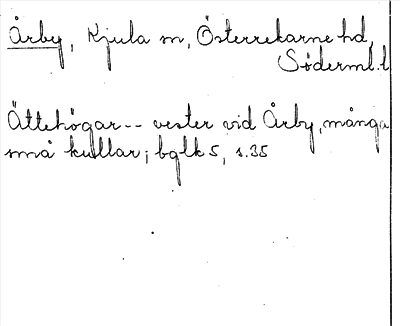 Årby, Kjula sn, Österrekarne hd,
Söderml. l
Ättehögar -- vester vid Årby, många
små kullar; bglk 5, s. 35